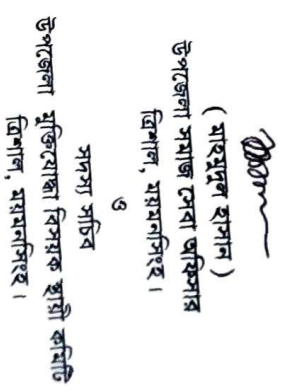 ( মাহমুদুল হাসান )
উপজেলা সমাজ সেবা অফিসার
ত্রিশাল, ময়মনসিংহ।
ও
সদস্য সচিব
উপজেলা মুক্তিযোদ্ধা বিষয়ক স্থায়ী কমিটি
ত্রিশাল, ময়মনসিংহ।